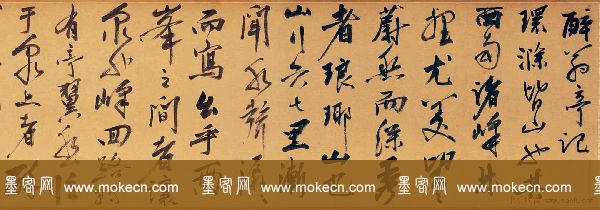 醉翁亭記
環滁皆山也其
西南諸峰林
壑尤美望之
蔚然而深秀
者琅琊山也
山行六七里漸
聞水聲潺
而寫出乎兩
峯之間者釀
泉也峰回路轉
有亭翼然臨
于泉上者
墨客网 www.mokecn.com 墨客网 www.mokecn.com 墨客网 www.mokecn.com